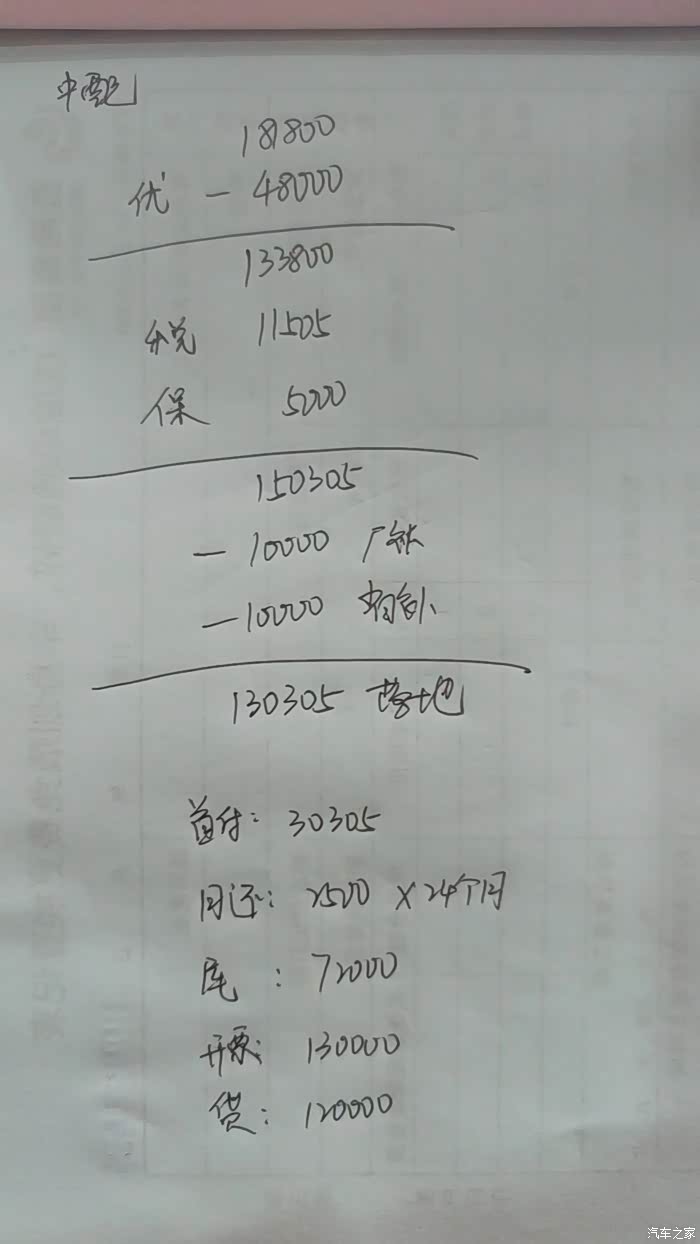 中配
181800
优 - 48000
133800
税 11505
保 5000
150305
- 10000 厂补
- 10000 补
130305 落地
首付: 30305
月还: 2500 × 24个月
尾 : 72000
开票: 130000
贷: 120000
汽车之家